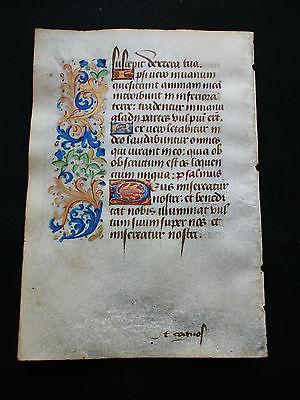 suscepit dextera tua.
Ipsi vero in vanum
quesierunt animam mea
introibunt in inferiora
terre: tradentur in manus
gladii partes vulpiu erut.
Rex vero letabitur in
deo laudabuntur omnes
qui iurant in eo: quia ob
obstructum est os loquen
tium iniqua: psalmus
Deus misereatur
nostri: et benedi
cat nobis illuminat vul
tum suum super nos et
misereatur nostri.